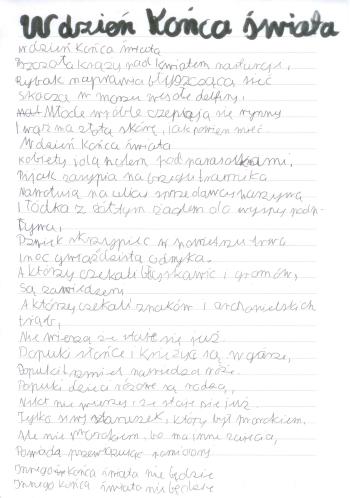 W dzień końca świata
W dzień końca świata
Pszczoła krąży nad kwiatem nasturcji,
Rybak naprawia błyszczącą sieć
Skaczą w morzu wesołe delfiny,
Młode wróble czepiają się rynny
I wąż ma złotą skórę, jak powinien mieć.
W dzień końca świata
Kobiety idą polem pod parasolkami,
Pijak zasypia na brzegu trawnika
Nawołują na ulicy sprzedawcy warzywa
I łódka z żółtym żaglem do wyspy podp-
ływa,
Dźwięk skrzypiec w powietrzu trwa
I noc gwiaździstą odmyka.
A którzy czekali błyskawic i gromów,
Są zawiedzeni
A którzy czekali znaków i archanielskich
trąb,
Nie wierzą że staje się już.
Dopóki słońce i księżyc są w górze,
Dopóki trzmiel nawiedza różę
Dopóki dzieci różowe się rodzą,
Nikt nie wierzy, że staje się już
Tylko siwy staruszek, który byłby prorokiem.
Ale nie jest prorokiem, bo ma inne zajęcie,
Powiada przewiązując pomidory
Innego końca świata nie będzie
Innego końca świata nie będzie